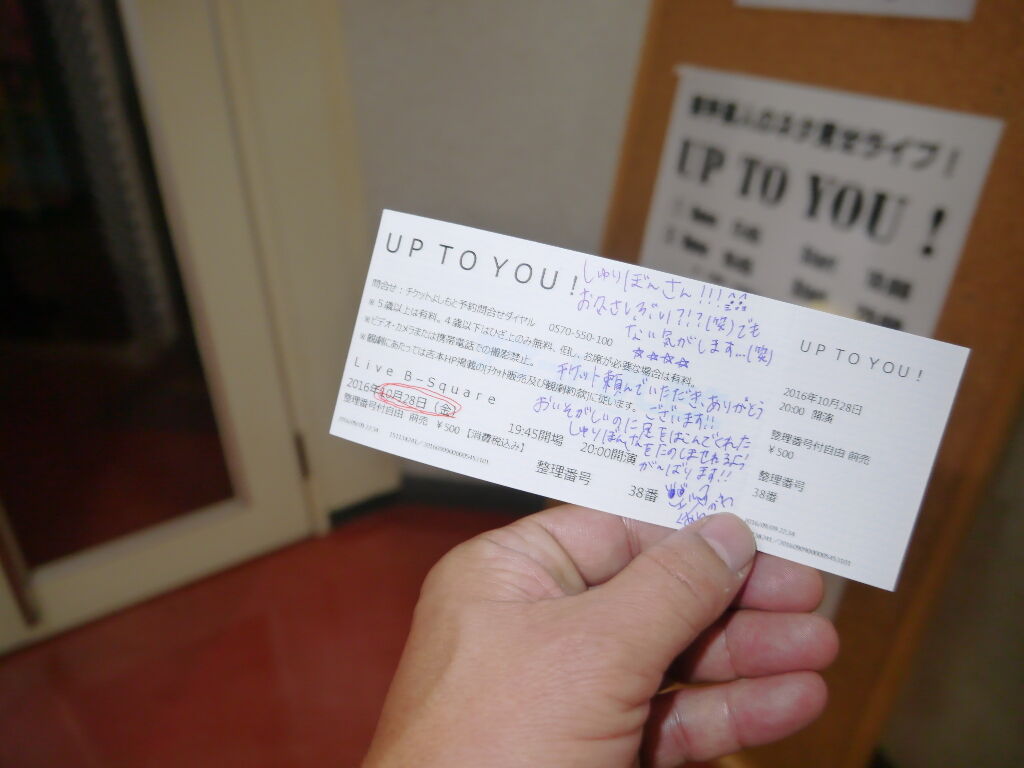 UP TO YOU!
問合せ：チケットよしもと予約問合せダイヤル 0570-550-100
※５歳以上は有料、４歳以下はひざ上のみ無料、但し、お席が必要な場合は有料。
※ビデオ・カメラまたは携帯電話での撮影禁止。
※観劇にあたっては吉本HP掲載の「チケット販売及び観劇約款」に従います。
Live B-Square
2016年10月28日（金） 19:45開場 20:00開演
整理番号付自由 前売 ￥500【消費税込み】
整理番号 38番
2016/09/09 22:34
しゅりぼんさん!!!
お久しぶり!?!?(笑)でも
ない気がします…(笑)
☆☆☆☆
チケット頼んでいただきありがとう
ございます!!
おいそがしいのに足をはこんでくれた
しゅりぼんさんをたのしませれるよう
がんばります!!
UP TO YOU!
2016年10月28日
20:00 開演
整理番号付自由 前売
￥500
整理番号
38番
2016/09/09 22:34
ネタ見せライブ！
UP TO YOU !